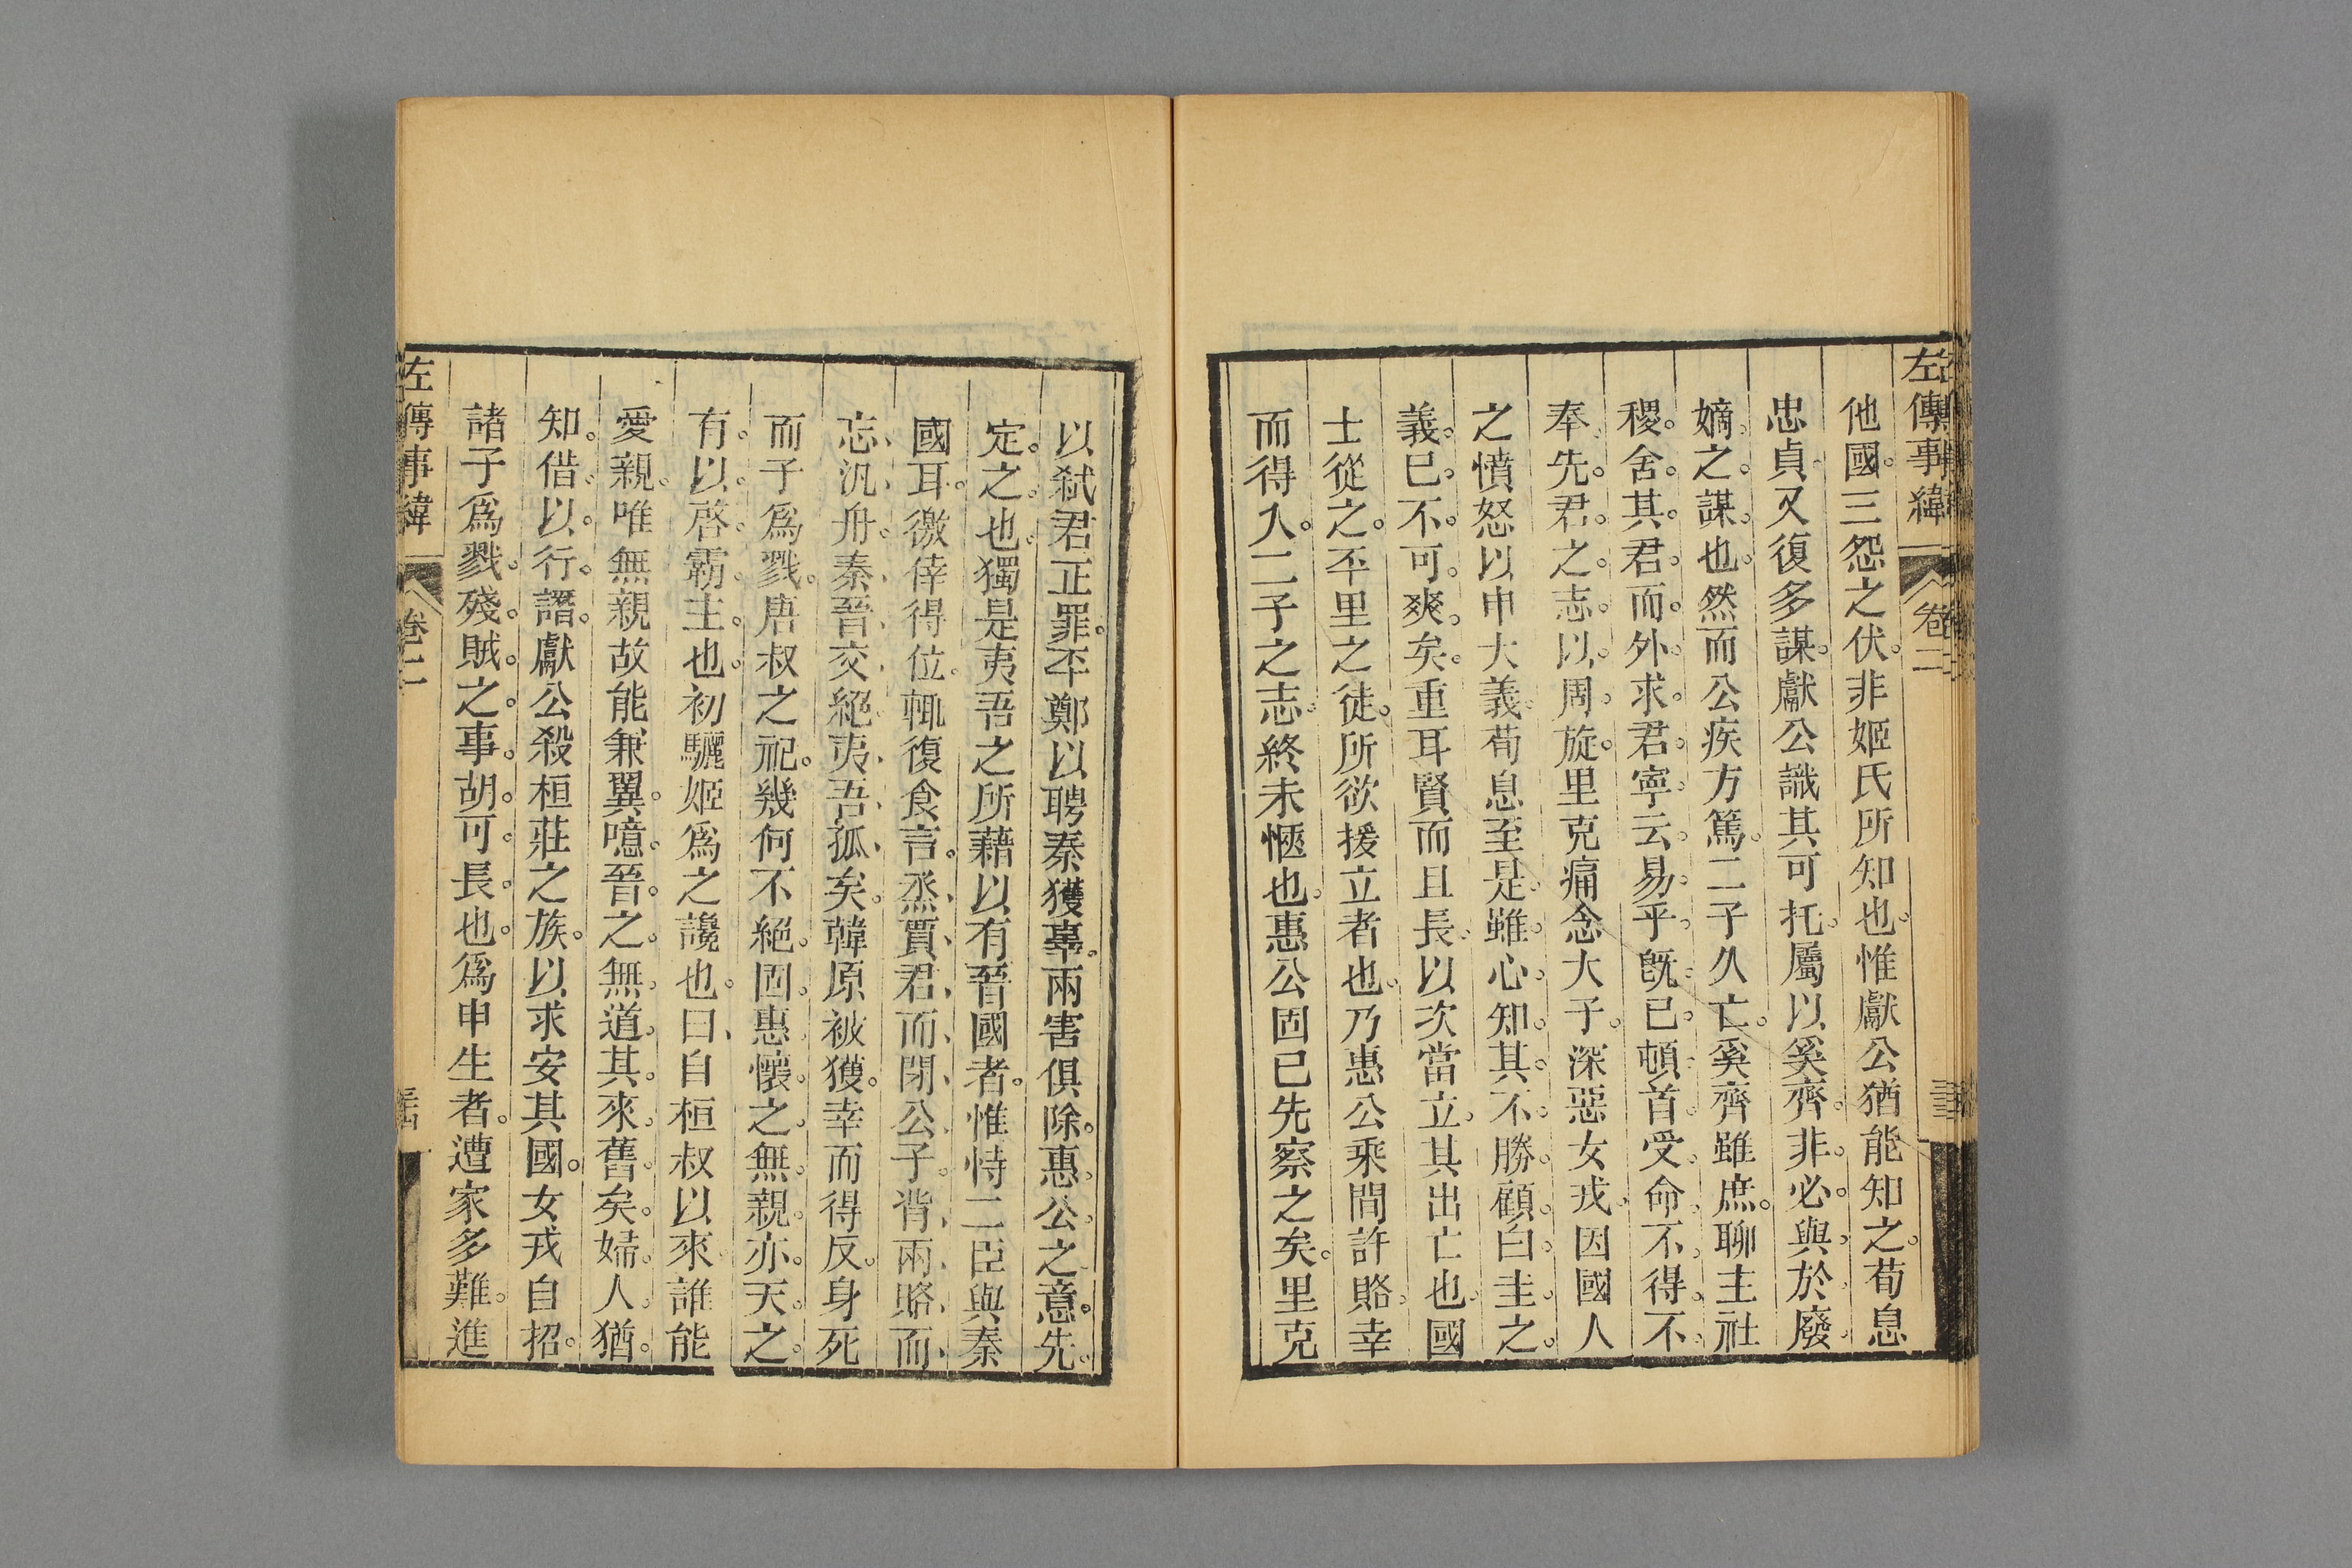 左傳事緯
卷二
他國三怨之伏非姬氏所知也惟獻公猶能知之荀息
忠貞又復多謀獻公識其可托屬以奚齊非必與於廢
嫡之謀也然而公疾方篤二子久亡奚齊雖庶聊主社
稷舍其君而外求君寧云易乎旣已頓首受命不得不
奉先君之志以周旋里克痛念大子深惡女戎因國人
之憤怒以申大義荀息至是雖心知其不勝顧白圭之
義已不可爽矣重耳賢而且長以次當立其出亡也國
士從之丕里之徒所欲援立者也乃惠公乘間許賂幸
而得入二子之志終未愜也惠公固已先察之矣里克
以弑君正罪丕鄭以聘秦獲辜兩害俱除惠公之意先
定之也獨是夷吾之所藉以有晉國者惟恃二臣與秦
國耳徼倖得位輒復食言烝賈君而閉公子背兩賂而
忘汎舟秦晉交絕夷吾孤矣韓原被獲幸而得反身死
而子爲戮唐叔之祀幾何不絕固惠懷之無親亦天之
有以啓霸主也初驪姬爲之讒也曰自桓叔以來誰能
愛親唯無親故能兼翼噫晉之無道其來舊矣婦人猶
知借以行譖獻公殺桓莊之族以求安其國女戎自招
諸子爲戮殘賊之事胡可長也爲申生者遭家多難進
左傳事緯
卷二